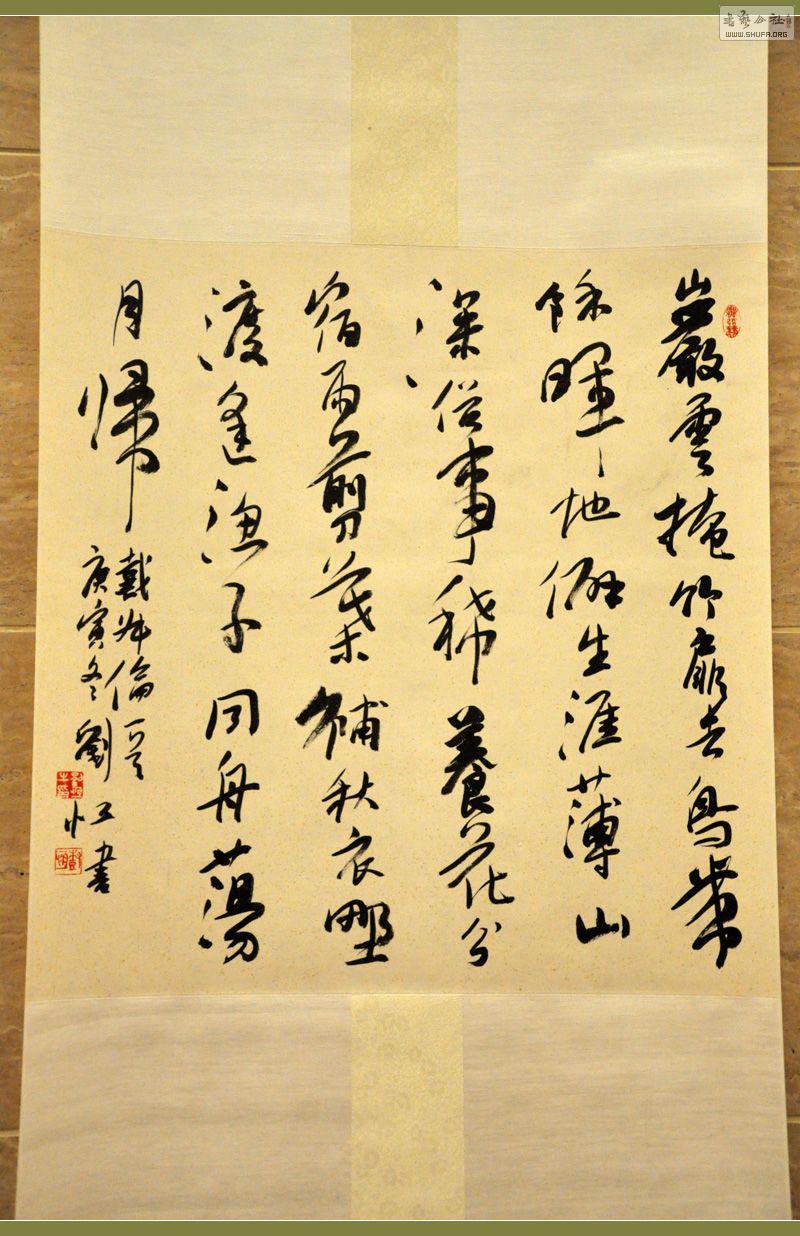 巖雲掩竹扉去鳥帶
餘暉地僻生涯薄山
深俗事稀養花分
宿雨剪葉補秋衣野
渡逢漁子同舟蕩
月歸
戴叔倫詩
庚寅冬劉恒書
WWW.SHUFA.ORG